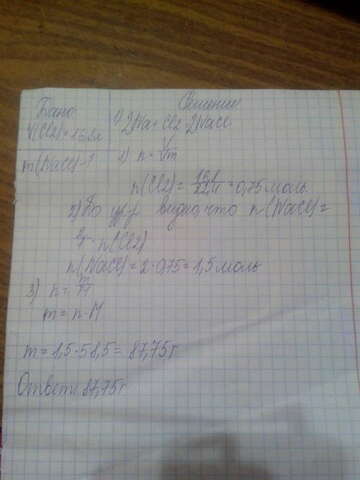 Дано:
Решение
V(Cl2)=16,8л
1) 2Na+Cl2=2NaCl
m(NaCl)-?
2) n=V/Vm
n(Cl2)=16,8/22,4=0,75 моль
2) По ур-ю видно, что n(NaCl)=
n(Cl2)
n(NaCl)=2·0,75=1,5 моль
3) n=m/M
m=n·M
m=1,5·58,5=87,75г
Ответ: 87,75г